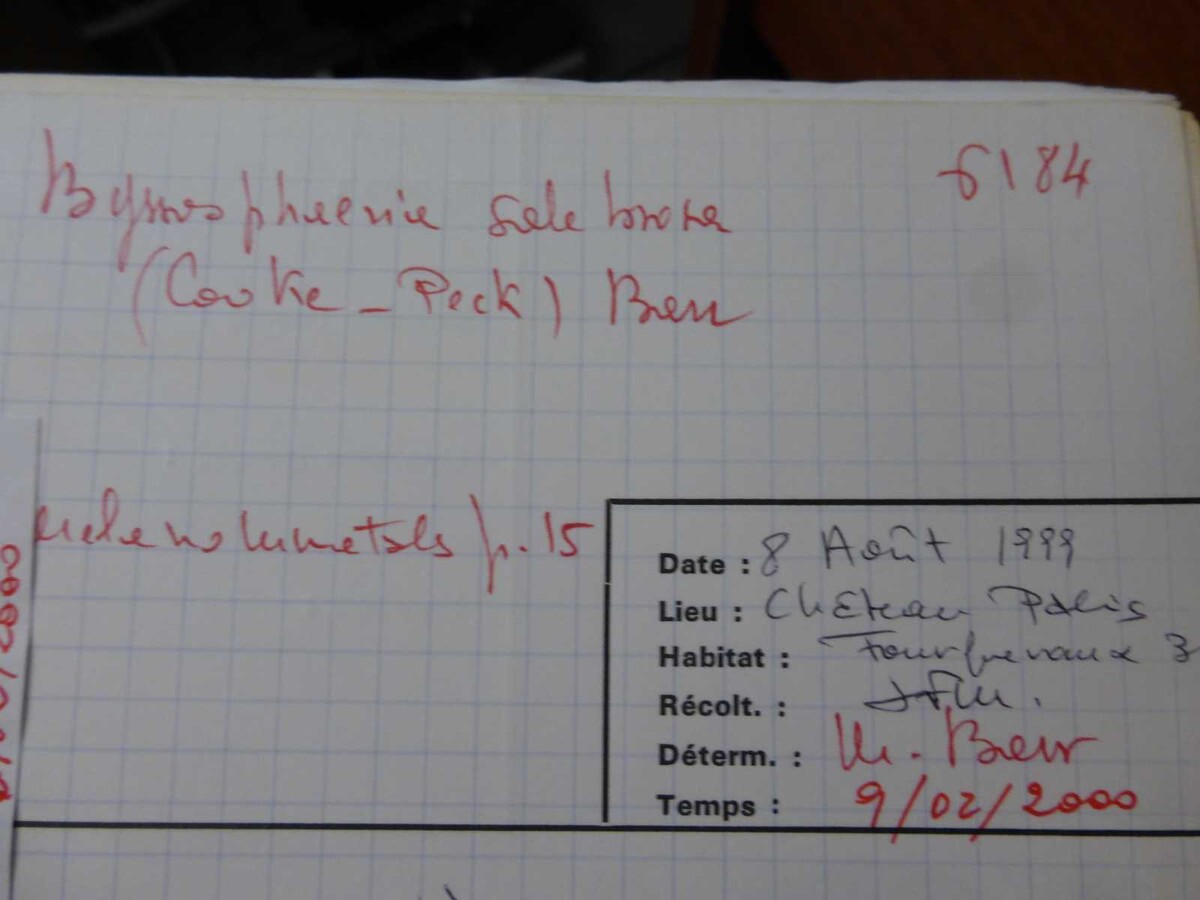 Byssosphaeria salebrosa 6184
(Cooke - Peck) Barr
p. 15
Date : 8 Août 1999
Lieu : Château Palis
Habitat : Fourquevaux 3
Récolt. : JFM.
Déterm. : M. Barr
Temps : 9/02/2000